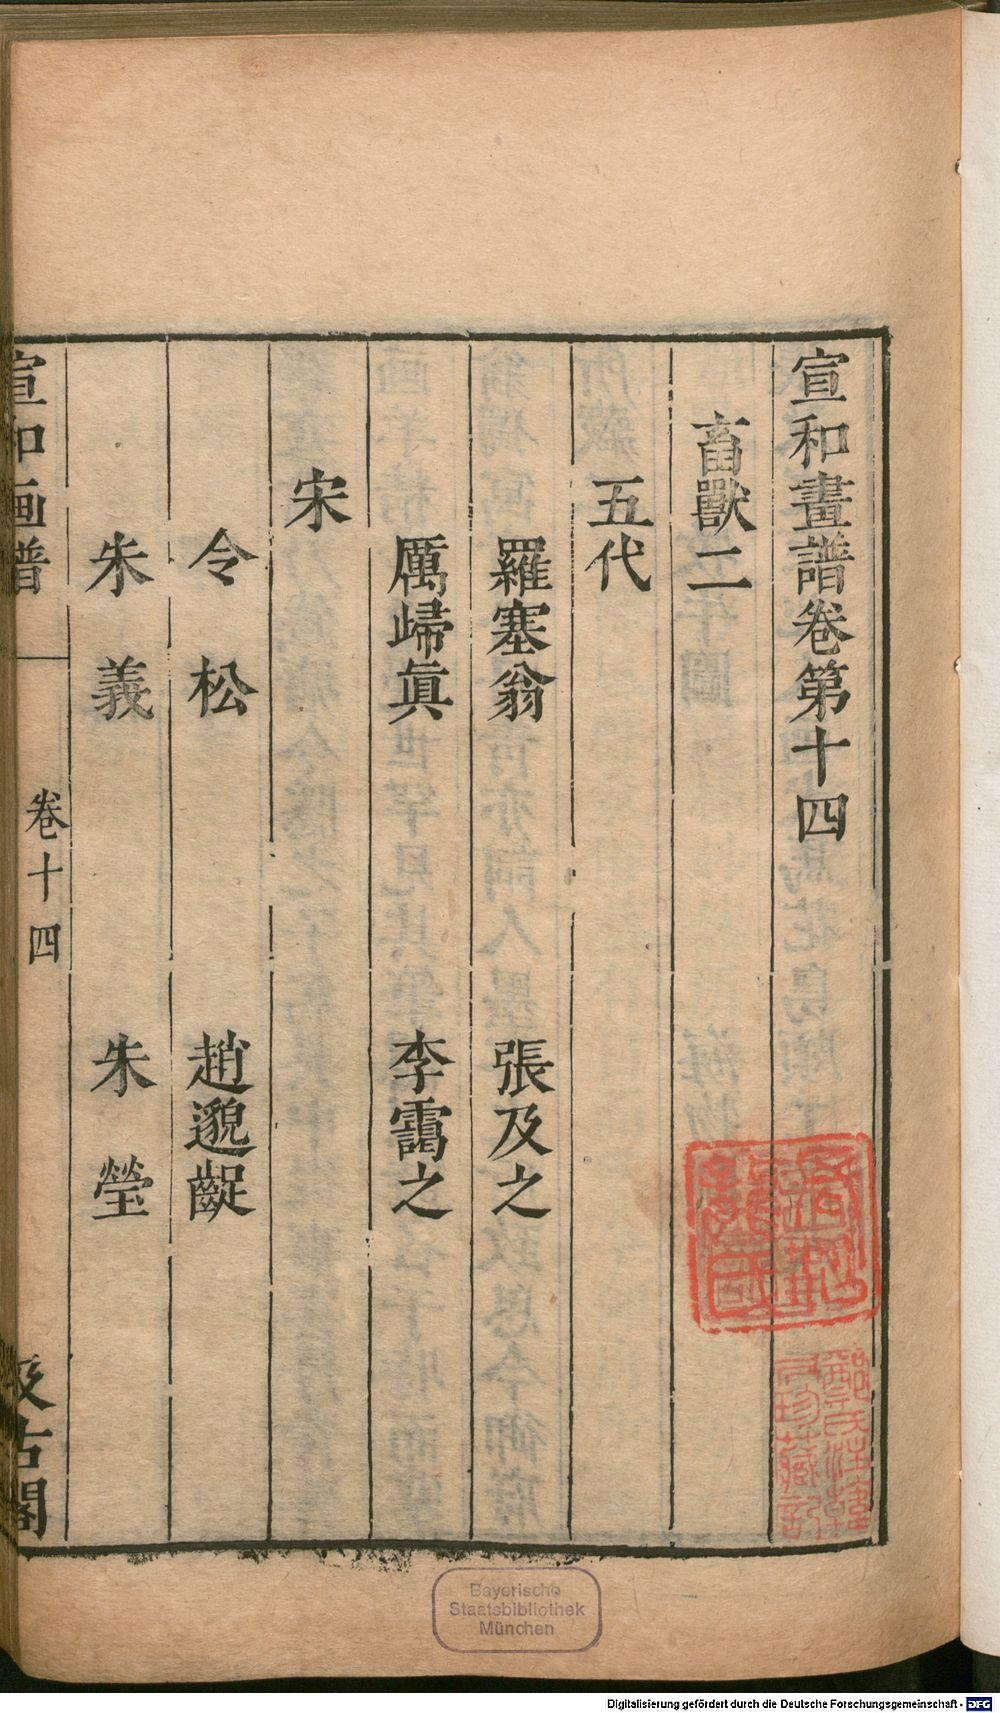 宣和畫譜卷第十四
畜獸二
五代
羅塞翁　張及之
厲歸眞　李靄之
宋
令松　趙邈齪
朱義　朱瑩
宣和画譜　卷十四　汲古閣
Bayerische
Staatsbibliothek
München
Digitalisierung gefördert durch die Deutsche Forschungsgemeinschaft - DFG